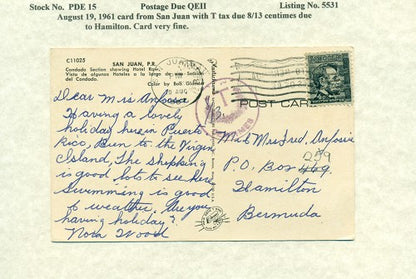 Stock No. PDE 15 Postage Due QEII Listing No. 5531
August 19, 1961 card from San Juan with T tax due 8/13 centimes due
to Hamilton. Card very fine.
C11025
SAN JUAN, P.R.
Condado Section showing Hotel Row.
Vista de algunos Hoteles a lo largo de una Sección
del Condado.
Color by Bob
Dear M is
Having a lovely
holiday here in Puerto
Rico, Been to the Virgin
Island, The shipping
is good lots to see here
Swimming is good
& weather, Are you
having holiday?
Nora Wood
T
CENTIMES
POST CARD
Mr & Mrs Fred.
259
P.O. Box 469,
Hamilton
Bermuda